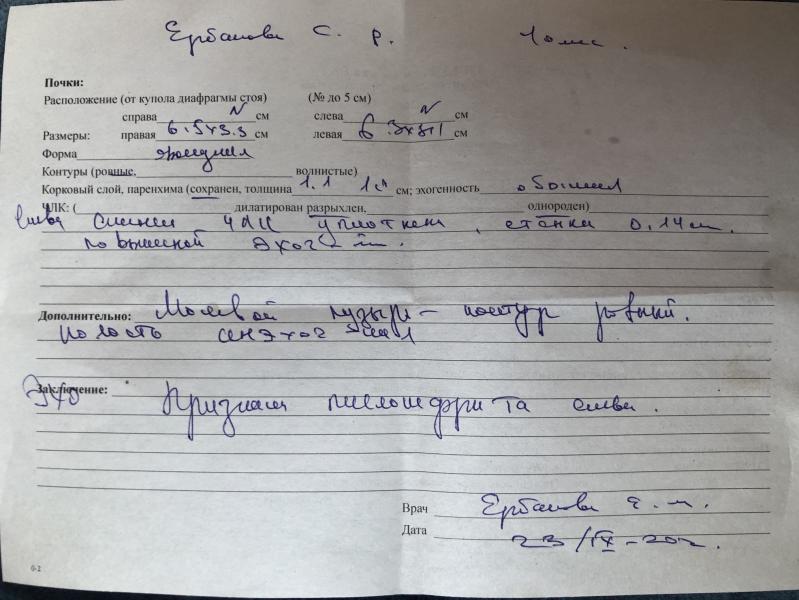 Ербанова С. Р. 10 мес.
Почки:
Расположение (от купола диафрагмы стоя) (№ до 5 см)
справа N см слева N см
Размеры: правая 6.5х3.3 см левая 6.3х3.1 см
Форма обычная
Контуры (ровные, волнистые)
Корковый слой, паренхима (сохранен, толщина 1.1 см; эхогенность обычная
ЧЛК: ( дилатирован разрыхлен, однороден)
слева стенки ЧЛК уплотнен, стенка 0.14 см.
повышенной эхог
Дополнительно: Мочевой пузырь - контур ровный.
полость анэхогенная
Заключение:
Эхо Признаки пиелонефрита слева.
Врач Ербанова Е. М.
Дата 23/IX-202
0-2